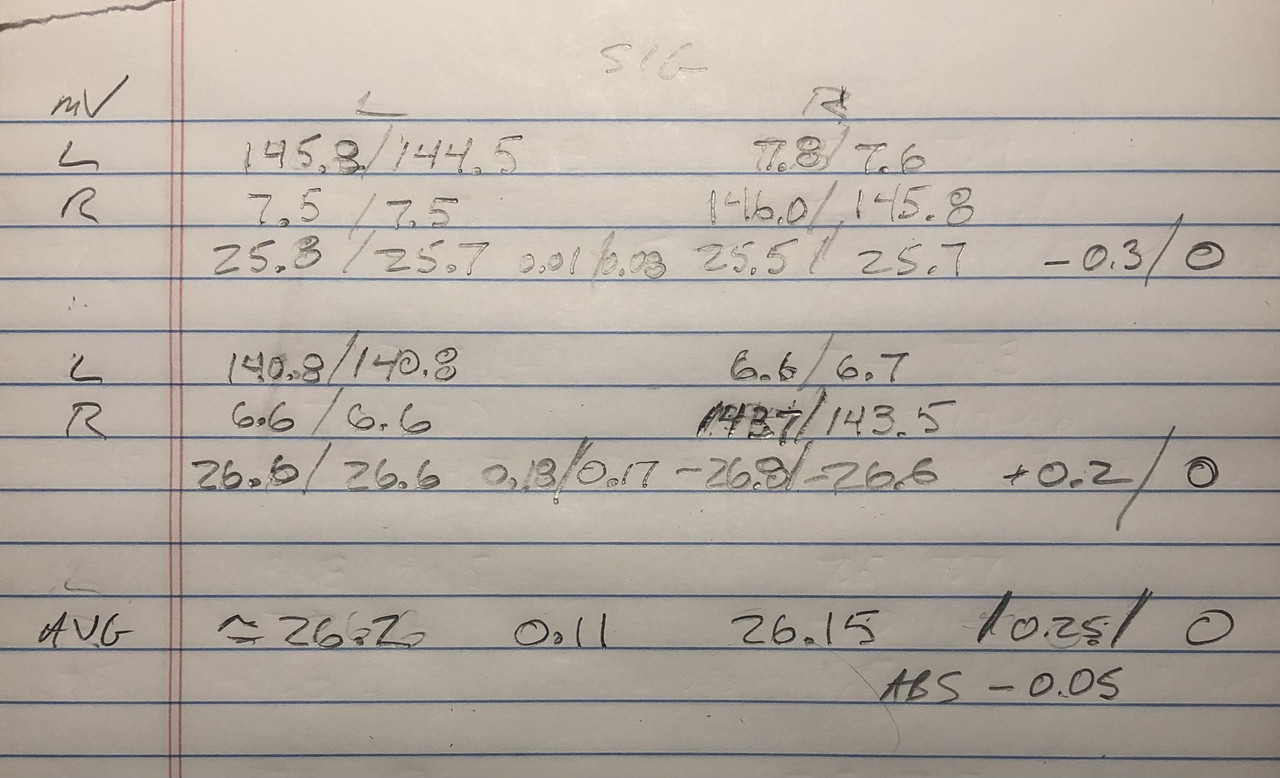 SIG
mV L R
L 145.8/144.5 7.8/7.6
R 7.5/7.5 146.0/145.8
25.8/25.7 0.01/0.03 25.5/25.7 -0.3/0
L 140.8/140.8 6.6/6.7
R 6.6/6.6 143.7/143.5
26.6/26.6 0.18/0.17 -26.8/-26.6 +0.2/0
AVG ≈26.2 0.11 26.15 /0.25/ 0
ABS -0.05